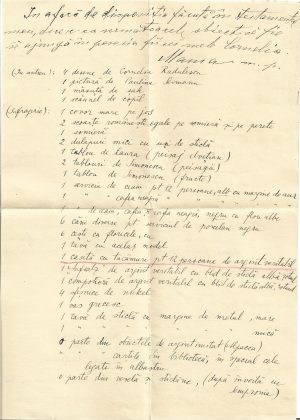 In afară de dispozițiile făcute în testamentul
meu, doresc ca următoarele obiecte să fie
să ajungă în posesia fiicei mele Cornelia.
Mama m. p.
(În antreu) : 4 desene de Corneliu Rădulescu
1 pictură de Pauline
1 măsuță de șah
1 scăunel de copil
(Sufragerie) : 1 covor mare pe jos
2 scoarțe românești egale pe somieră și pe perete
1 somieră
2 dulapuri mici cu uși de sticlă
1 tablou de Laura (peisaj elvețian)
2 tablouri de Simonescu (peisagii)
1 tablou de Simonescu (fructe)
1 serviciu de ceai pt. 12 persoane, alb cu margine de aur
1 " " cafea neagră " " "
1 " de ceai, cafea și cafea neagră negru cu flori albe
6 căni diverse pt. serviciul de porțelan negru
6 cești cu floricele, cu
1 tavă cu același model
1 casetă cu tacâmuri pt. 12 persoane de argint veritabil
1 de argint veritabil cu blid de sticlă albă, rotund
1 compotieră de argint veritabil cu blid de sticlă albă, rotund
4 sfeșnice de nickel
1 vas grecesc
1 tavă de sticlă cu margine de metal, mare
1 " " " " " " " mică
O parte din obiectele de argint imitat (Alpacca)
" " " cărțile din bibliotecă, în special cele
legate în albastru
O parte din vesela și sticlărie, (după învoială cu
Eufrosina)